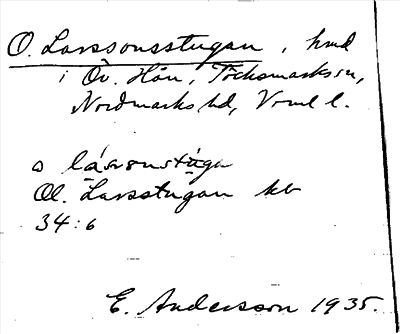 O. Larssonsstugan, hmd
i Öv. Hån, Töcksmarks sn,
Nordmarks hd, Vrml l.
Ol. Larsstugan kb
34:6
E. Andersson 1935.